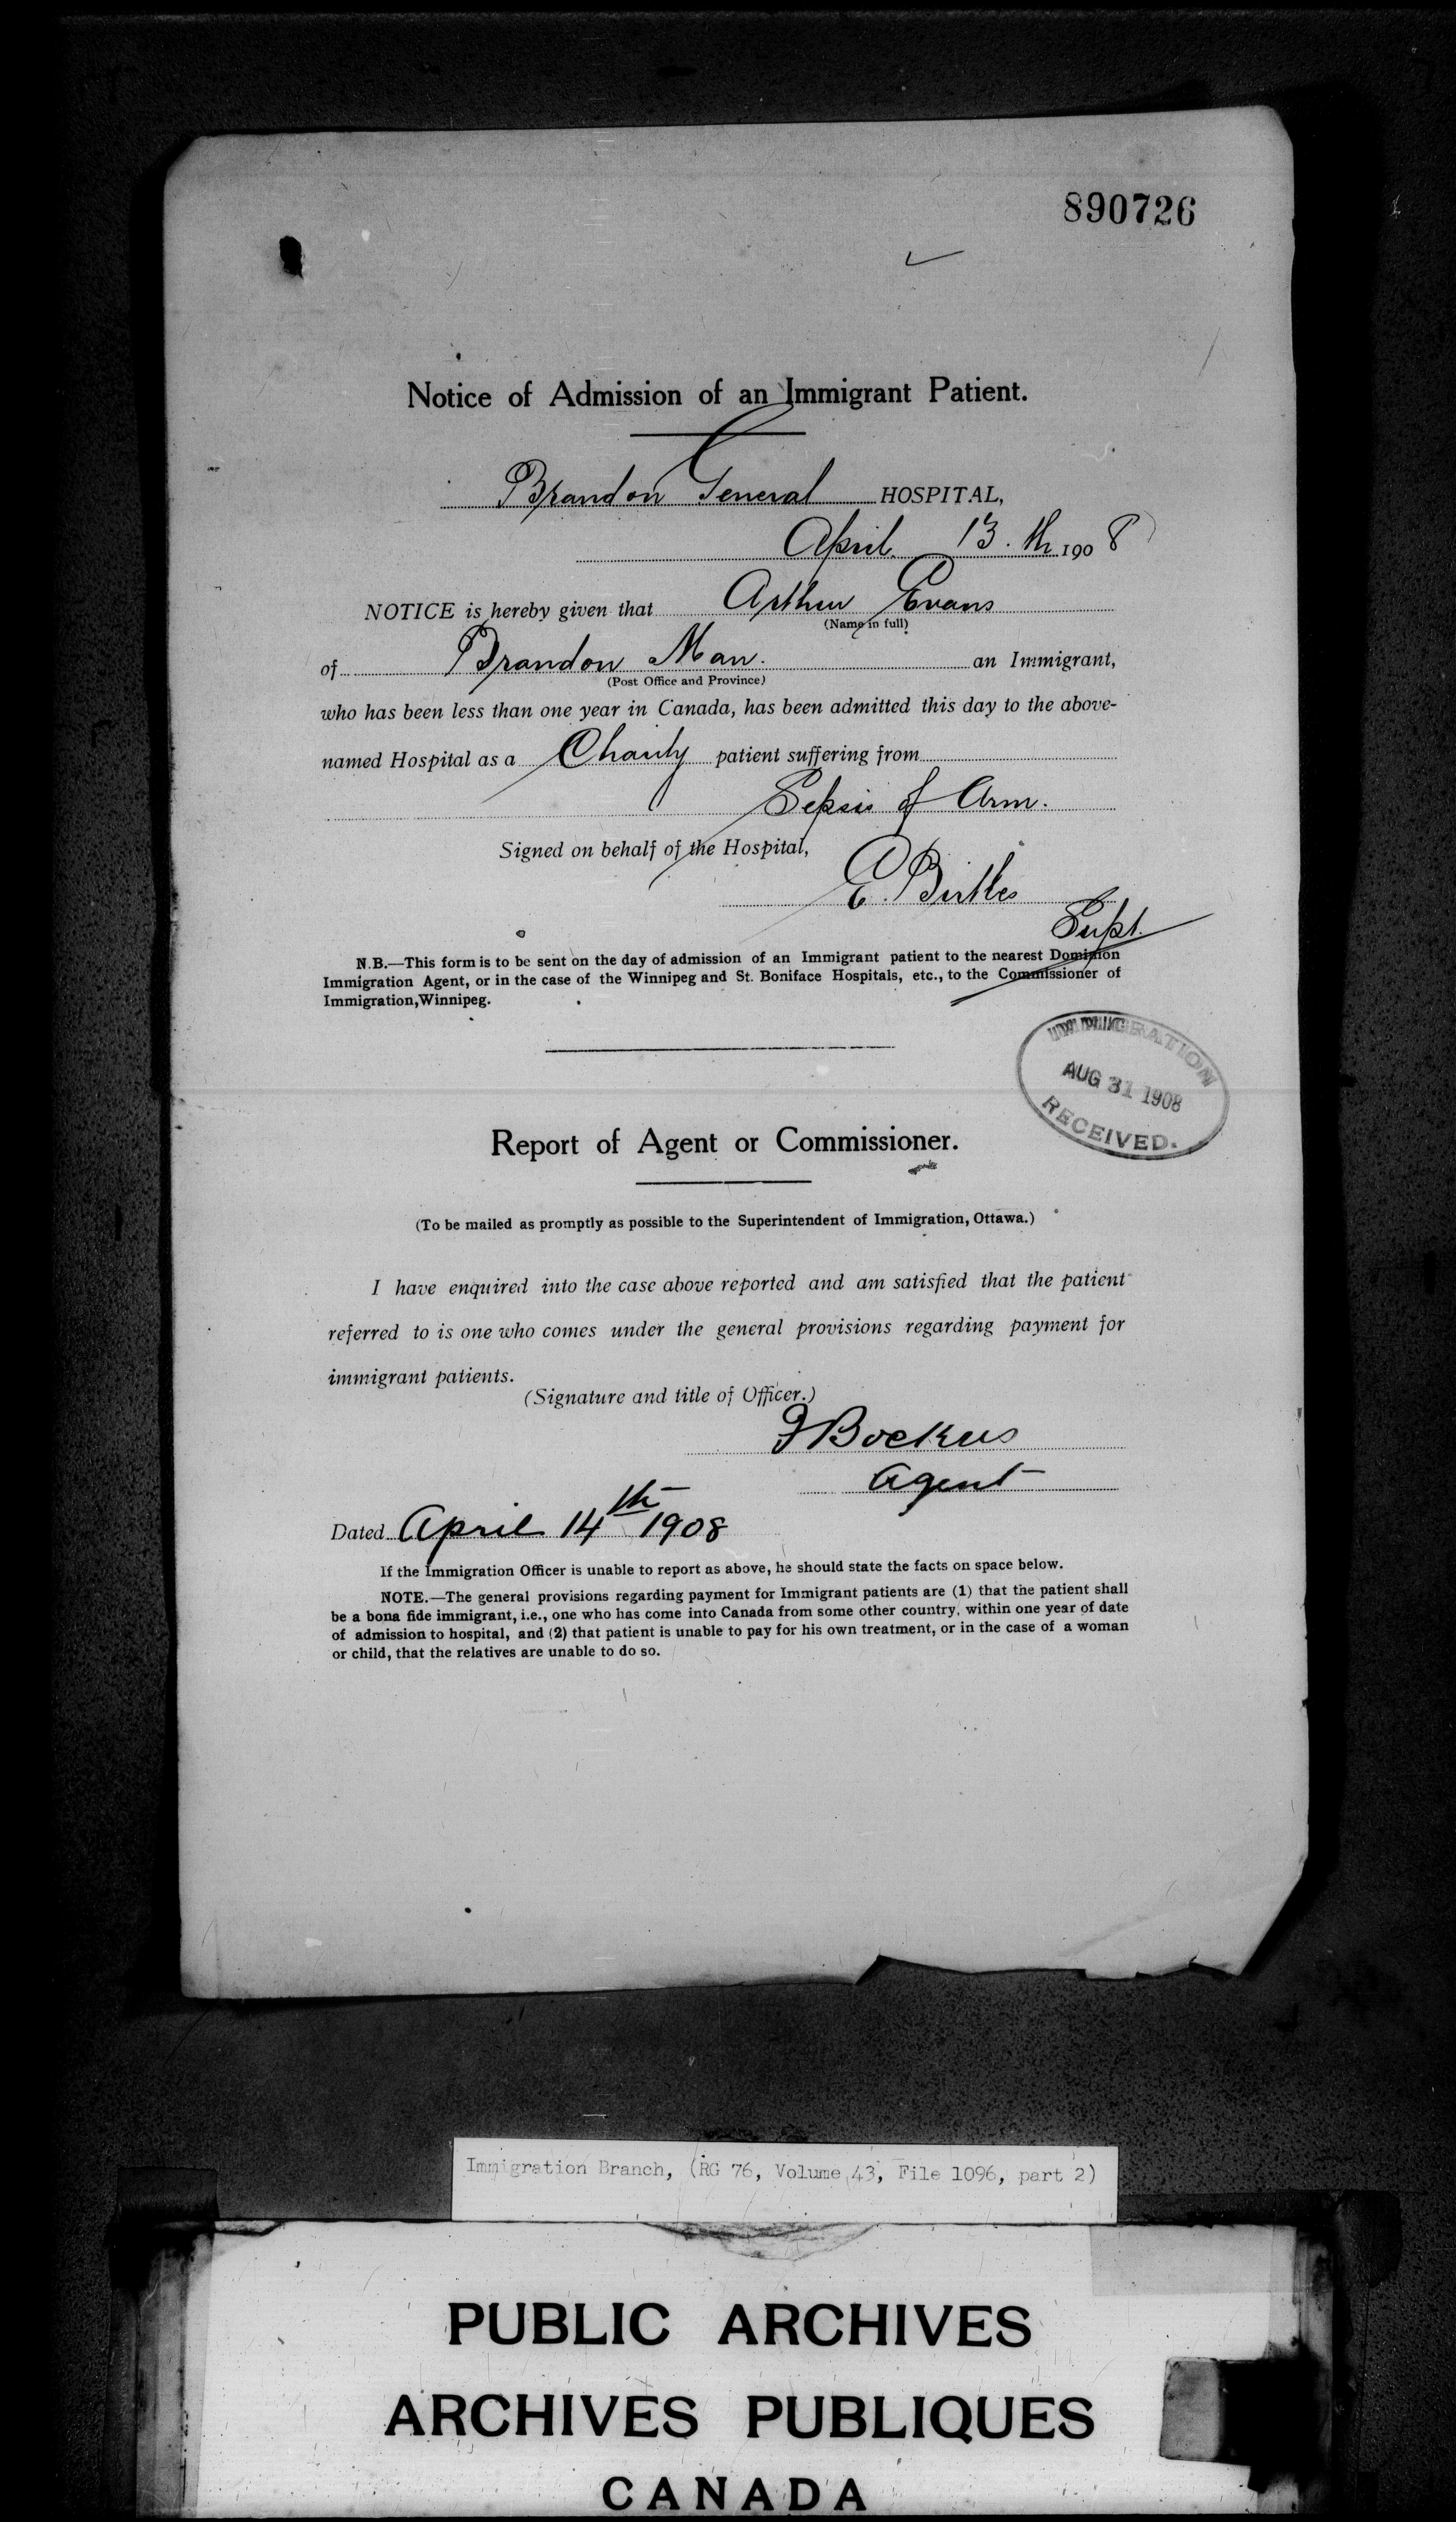 890726
Notice of Admission of an Immigrant Patient.
Brandon General HOSPITAL,
April 13.th 1908
NOTICE is hereby given that Arthur Evans
(Name in full)
of Brandon Man. an Immigrant,
(Post Office and Province)
who has been less than one year in Canada, has been admitted this day to the above-
named Hospital as a Charity patient suffering from
Sepsis of Arm.
Signed on behalf of the Hospital,
E. Birtles
Supt.
N.B.—This form is to be sent on the day of admission of an Immigrant patient to the nearest Dominion
Immigration Agent, or in the case of the Winnipeg and St. Boniface Hospitals, etc., to the Commissioner of
Immigration, Winnipeg.
IMMIGRATION
AUG 31 1908
RECEIVED.
Report of Agent or Commissioner.
(To be mailed as promptly as possible to the Superintendent of Immigration, Ottawa.)
I have enquired into the case above reported and am satisfied that the patient
referred to is one who comes under the general provisions regarding payment for
immigrant patients.
(Signature and title of Officer.)
Bockus
Agent
Dated April 14th 1908
If the Immigration Officer is unable to report as above, he should state the facts on space below.
NOTE.—The general provisions regarding payment for Immigrant patients are (1) that the patient shall
be a bona fide immigrant, i.e., one who has come into Canada from some other country, within one year of date
of admission to hospital, and (2) that patient is unable to pay for his own treatment, or in the case of a woman
or child, that the relatives are unable to do so.
Immigration Branch, (RG 76, Volume 43, File 1096, part 2)
PUBLIC ARCHIVES
ARCHIVES PUBLIQUES
CANADA